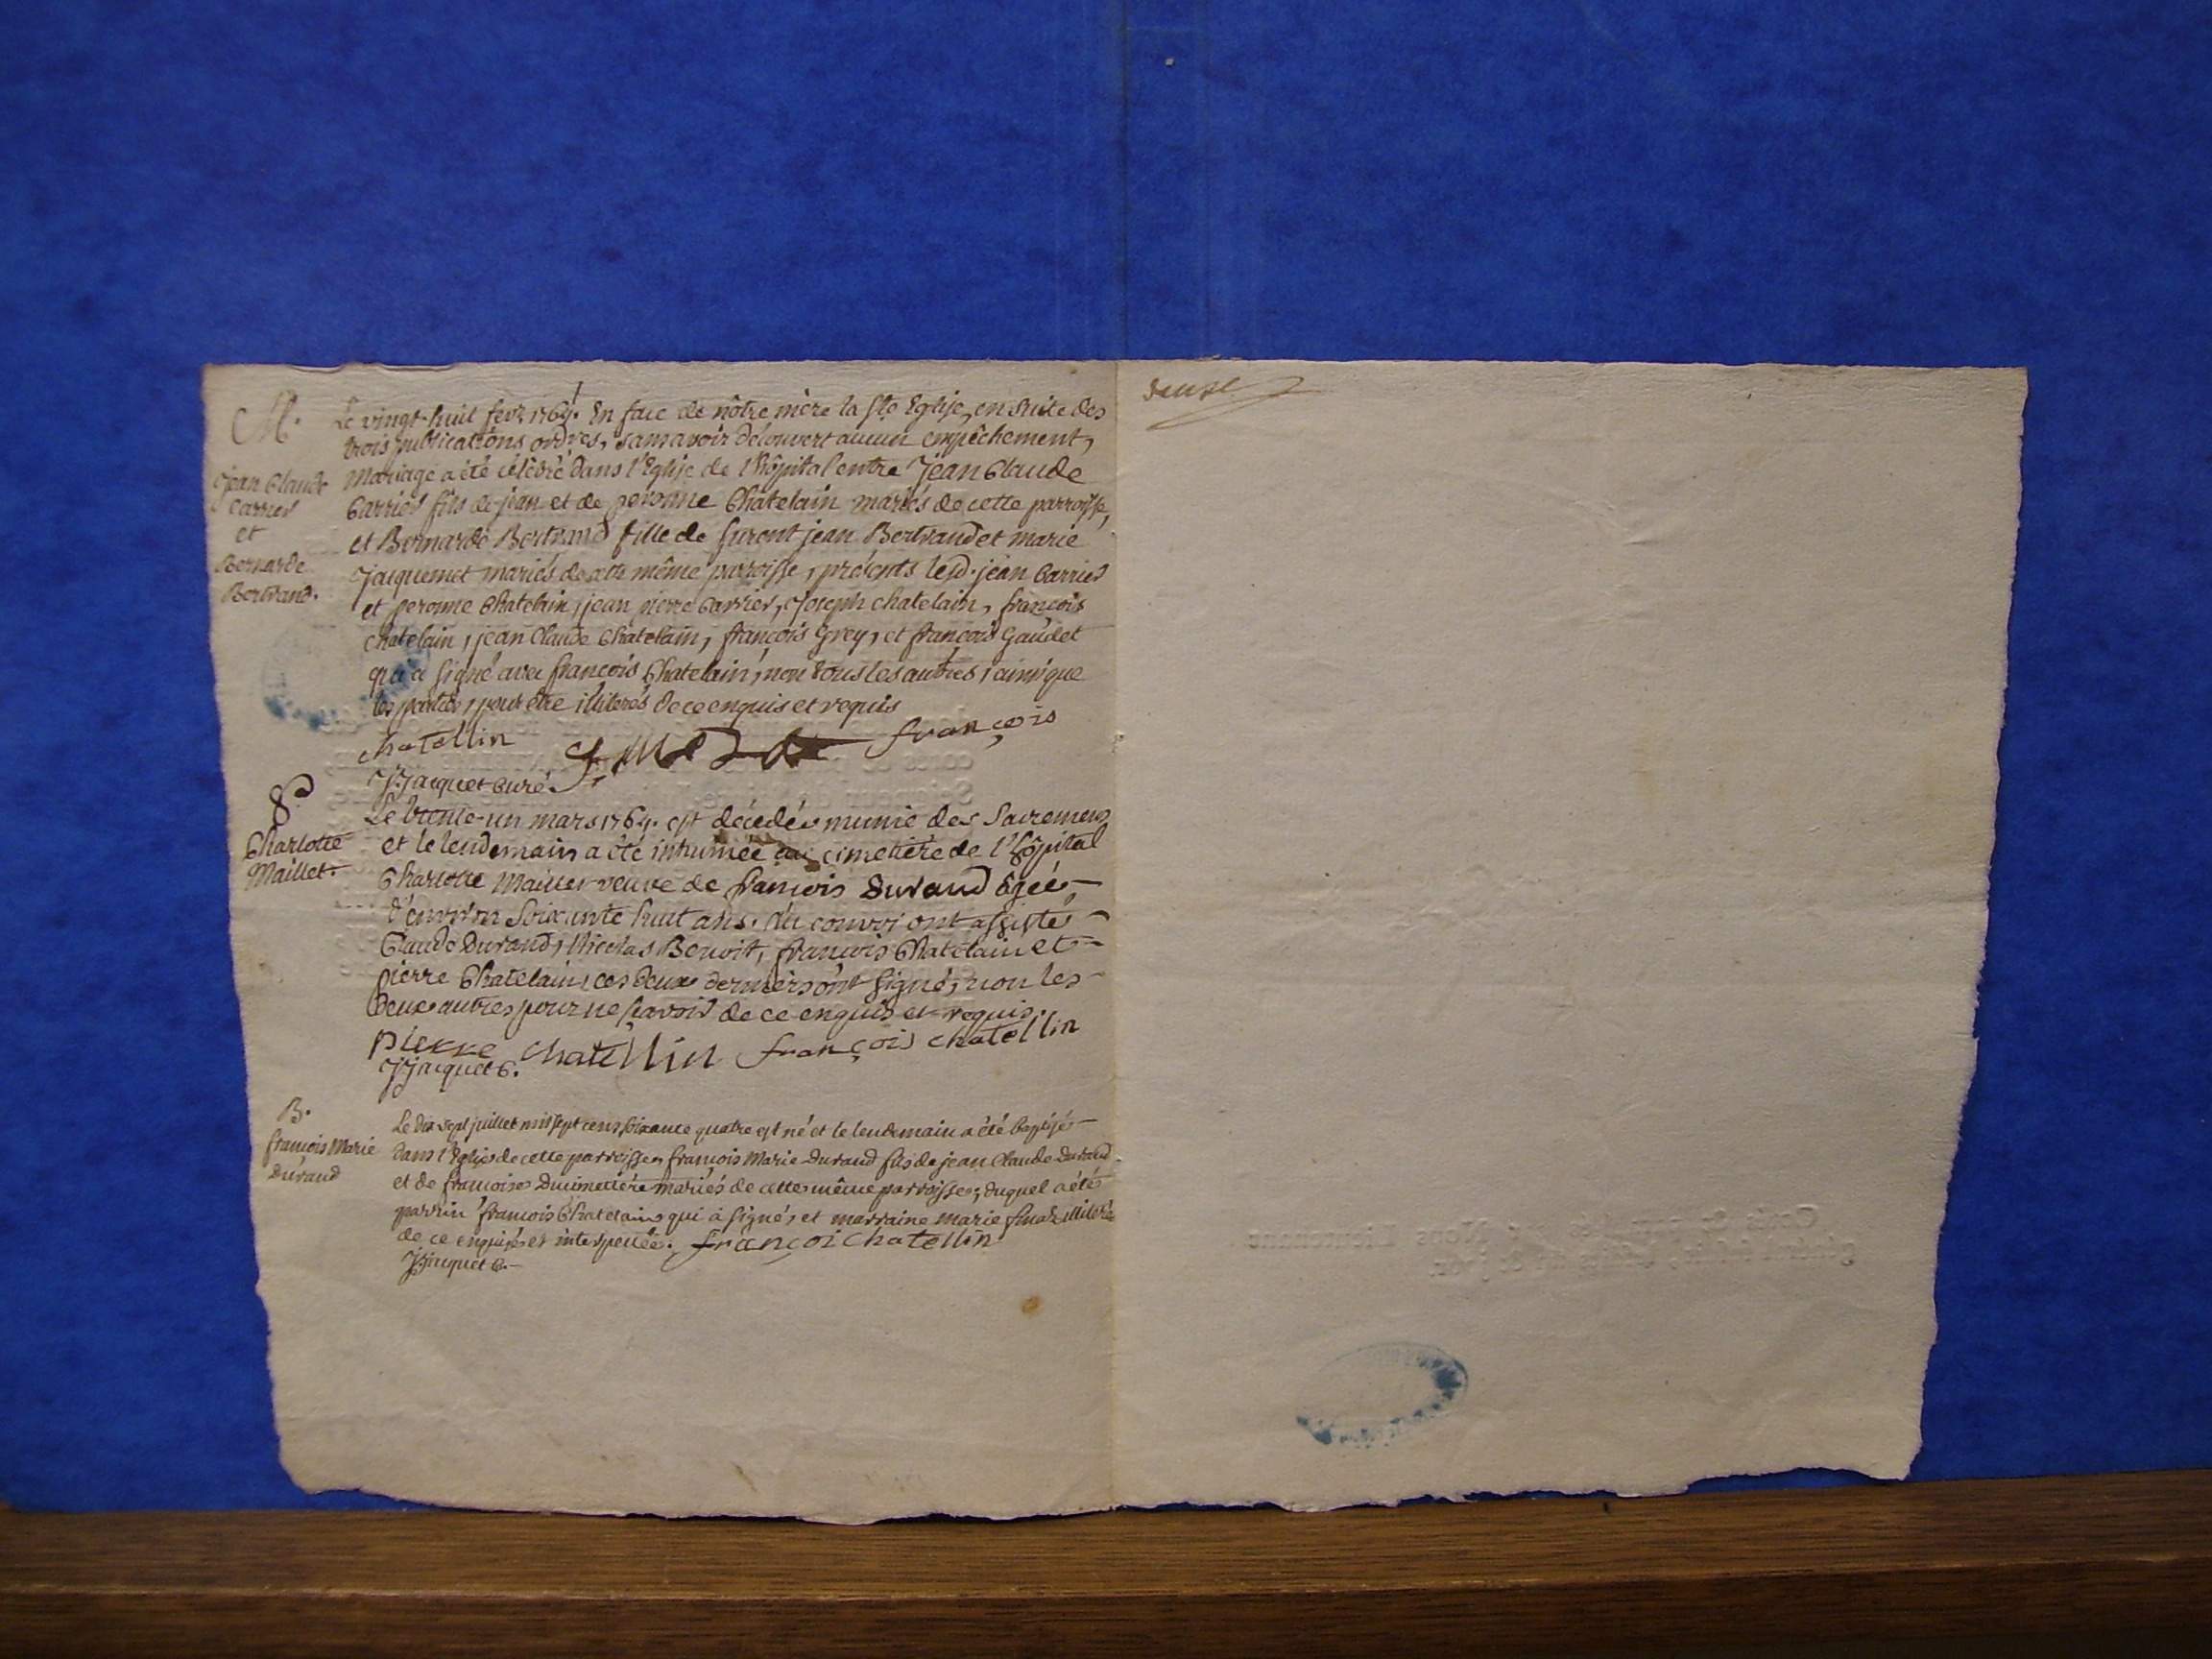 M.
Jean Claude
Carrier
et
Bernarde
Bertrand.
Le vingt-huit fevr 1764. En face de nôtre mère la Ste Eglise, en suite des
trois publications ordres, sans avoir découvert aucun empêchement,
Mariage a été célébré dans l'Eglise de l'hôpital entre Jean Claude
Carrier fils de jean et de peronne Chatelain mariés de cette parroisse,
et Bernarde Bertrand fille de furent jean Bertrand et marie
Jacquemet mariés de cette même parroisse, présents led. jean Carrier
et peronne Chatelain, jean pierre Carrier, Joseph chatelain, françois
chatelain, jean Claude Chatelain, françois Grey, et françois Gaudet
qui a signé avec françois Chatelain, non tous les autres, ainsi que
les parties, pour être illiterés de ce enquis et requis
chatellin françois
JJacquet curé.
S
Charlotte
Maillet.
Le trente-un mars 1764. est décédée munie des Sacremens
et le lendemain a été inhumée au cimetière de l'hôpital
Charlotte Maillet veuve de françois Durand âgée
d'environ soixante huit ans. au convoi ont assisté
Claude Durand, Nicolas Benoit, françois Chatelain et
pierre Chatelain, ces deux derniers ont signé, non les
deux autres pour ne savoir de ce enquis et requis.
pierre chatellin françois chatellin
JJacquet c.
B.
françois Marie
Durand
Le dix sept juillet mil sept cens soixante quatre est né et le lendemain a été baptisé
dans l'Eglise de cette parroisse françois Marie Durand fils de jean Claude Durand
et de françoise Ducimetière mariés de cette même parroisse; duquel a été
parrin françois Chatelain qui a signé, et marraine marie illiterée
de ce enquise et interpellée. françoi chatellin
JJacquet c.
douze